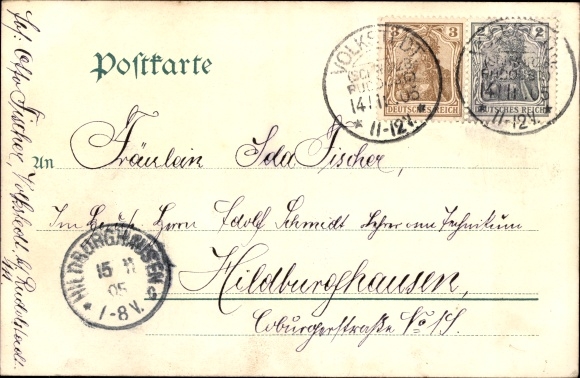 Postkarte
3
DEUTSCHES REICH
2
DEUTSCHES REICH
VOLKSTEDT
14 11 05
* 11-12V. *
14 11 05
11-12V.
An Fräulein Ida Fischer,
Herrn Adolf Schmidt Lehrer am Technikum
Hildburghausen,
Coburgerstraße No
HILDBURGHAUSEN
15 11
05
* 1-8 V.
Otto Fischer, Volkstedt b/ Rudolstadt.